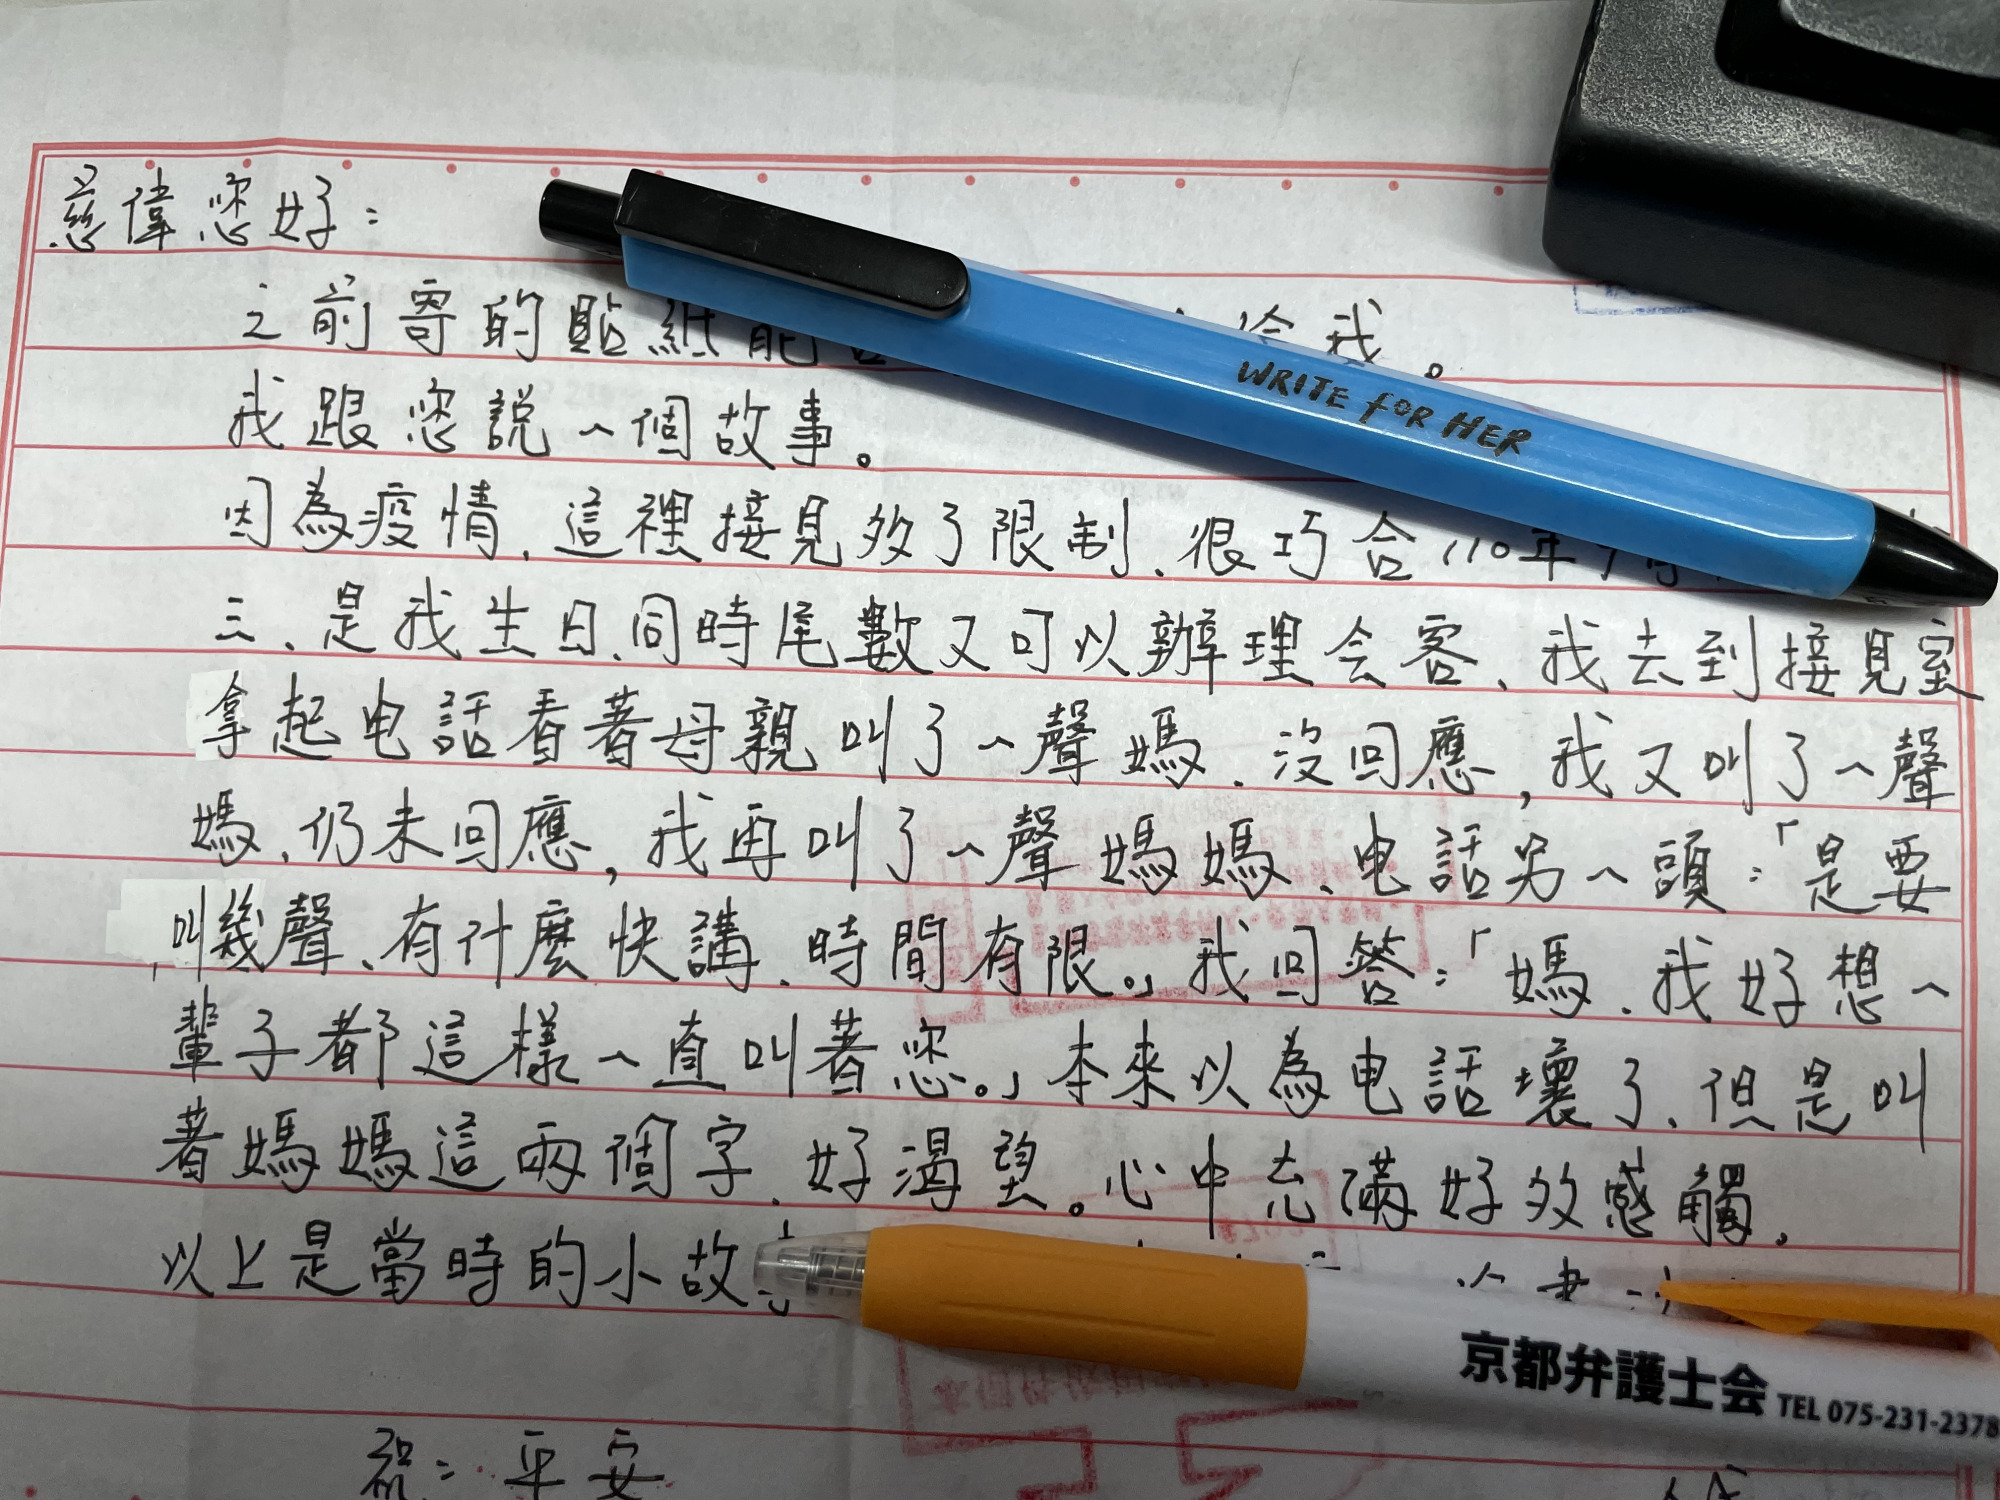 慈偉您好：
之前寄的貼紙能 給我。
我跟您說一個故事。
因為疫情，這裡接見多了限制，很巧合110年
三、是我生日、同時尾數又可以辦理会客，我去到接見室
拿起电話看著母親叫了一聲媽，沒回應，我又叫了一聲
媽，仍未回應，我再叫了一聲媽媽，电話另一頭：「是要
叫幾聲、有什麼快講，時間有限。」我回答：「媽，我好想一
輩子都這樣一直叫著您。」本來以為电話壞了，但是叫
著媽媽這兩個字，好渴望。心中充滿好多感觸，
以上是當時的小故
祝：平安
WRITE FOR HER
京都弁護士会 TEL 075-231-2378